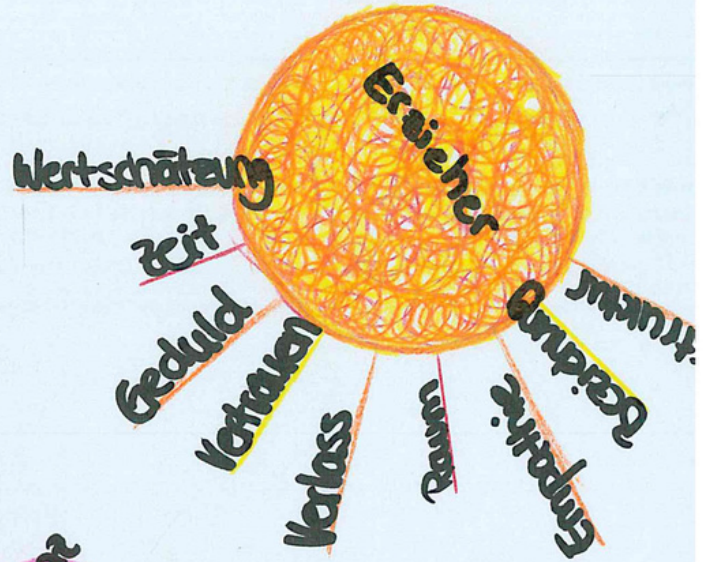 Erzieher
Wertschätzung
Zeit
Geduld
Vertrauen
Verlass
Raum
Empathie
Beziehung
Struktur